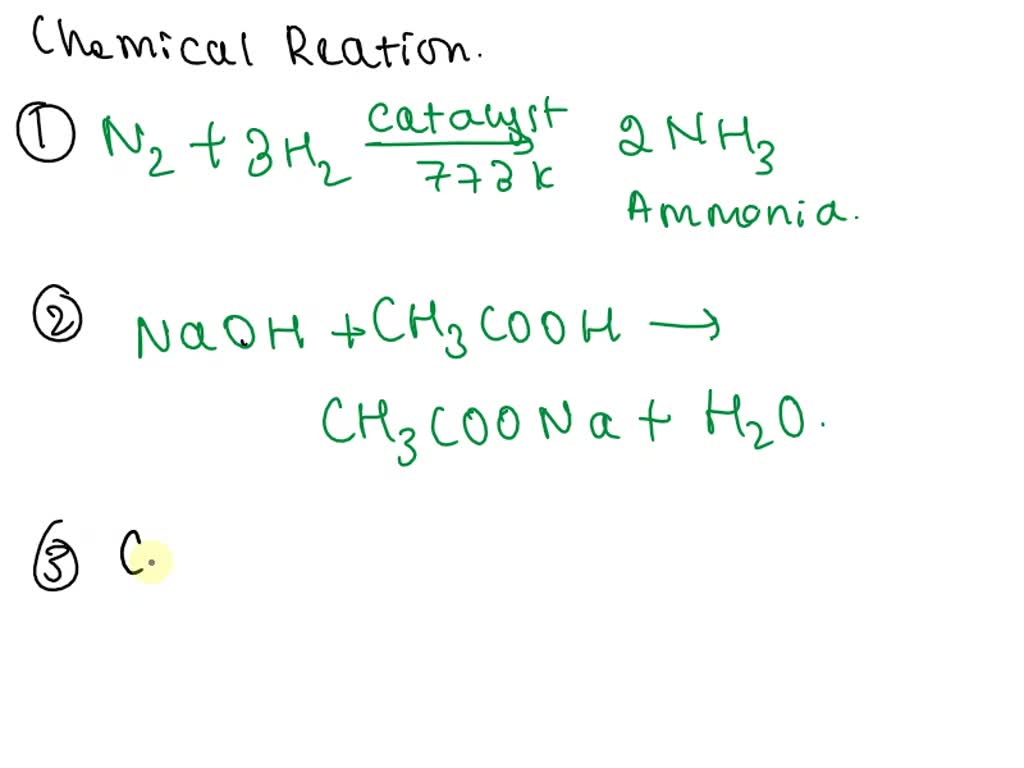 Chemical Reation.
① N₂ + 3H₂ catalyst 773 K 2NH₃
Ammonia.
② NaOH + CH₃COOH →
CH₃COONa + H₂O.
③ C